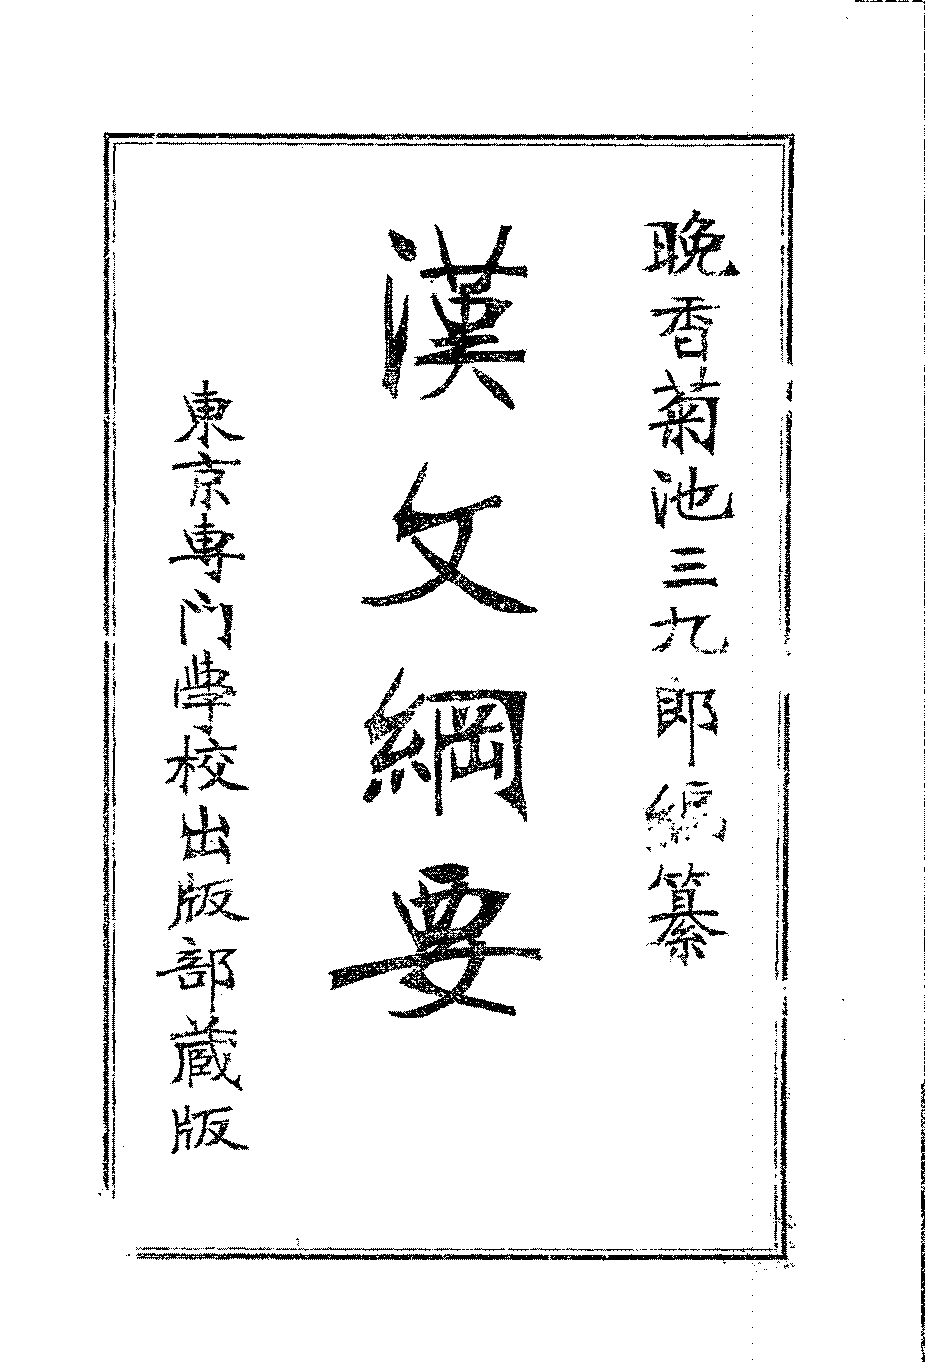 晚香菊池三九郎編纂
漢文綱要
東京專門學校出版部蔵版